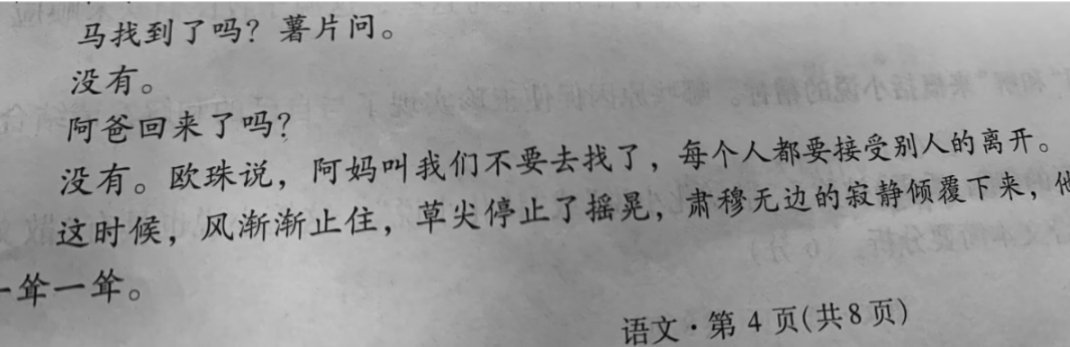 马找到了吗？薯片问。
没有。
阿爸回来了吗？
没有。欧珠说，阿妈叫我们不要去找了，每个人都要接受别人的离开。
这时候，风渐渐止住，草尖停止了摇晃，肃穆无边的寂静倾覆下来，他
一耸一耸。
语文·第 4 页(共8页)